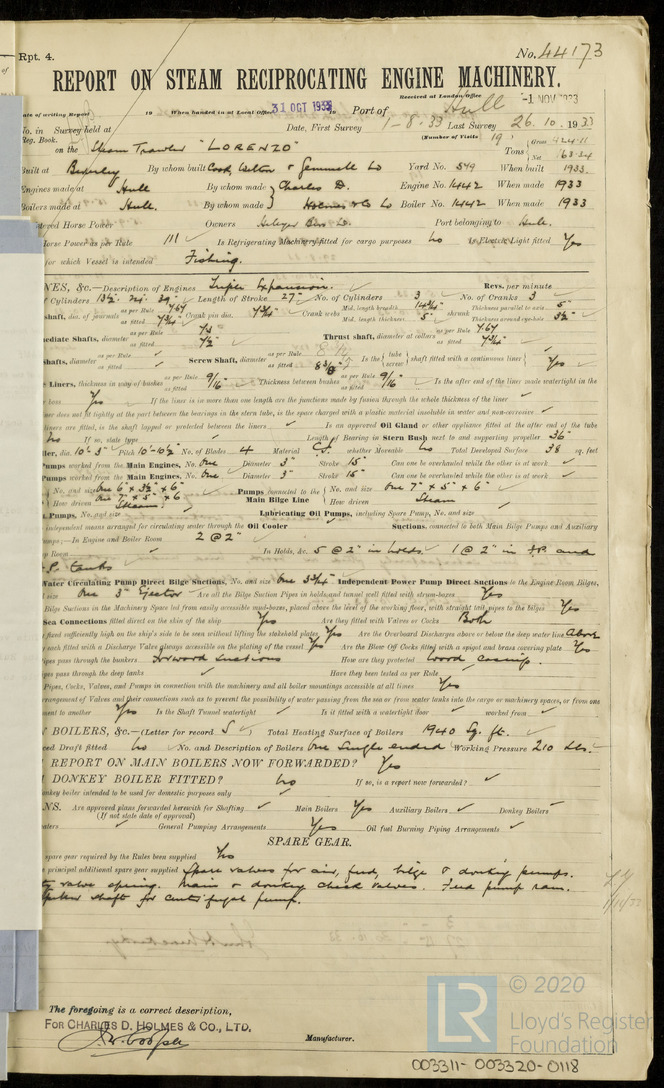 Rpt. 4.
No. 44173
REPORT ON STEAM RECIPROCATING ENGINE MACHINERY.
Received at London Office -1 NOV 1933
ate of writing Report 19 When handed in at Local Office 31 OCT 1933 Port of Hull
No. in Survey held at Date, First Survey 1-8-33 Last Survey 26.10.1933
Reg. Book. (Number of Visits 19)
on the Steam Trawler "LORENZO" Tons Gross 424.11 Net 163.34
Built at Beverley By whom built Cook, Welton & Gemmell Ld Yard No. 579 When built 1933.
Engines made at Hull By whom made Charles D. Engine No. 1442 When made 1933
Boilers made at Hull. By whom made Holmes & Co Ld Boiler No. 1442 When made 1933
Horse Power Owners Hellyer Bros Ld. Port belonging to Hull.
Horse Power as per Rule 111 Is Refrigerating Machinery fitted for cargo purposes No Is Electric Light fitted Yes
for which Vessel is intended Fishing.
NES, &c.—Description of Engines Triple Expansion. Revs. per minute
Cylinders 13½. 24. 39 Length of Stroke 27 No. of Cylinders 3 No. of Cranks 3
shaft, dia. of journals as per Rule 7.67 as fitted 7¾ Crank pin dia. 7¾ Crank webs Mid. length breadth 14¾ Mid. length thickness 5 shrunk Thickness parallel to axis 5 Thickness around eye-hole 3½
ediate Shafts, diameter as per Rule 7.3 as fitted 7½ Thrust shaft, diameter at collars as per Rule 7.67 as fitted 7¾
Shafts, diameter as per Rule as fitted Screw Shaft, diameter as per Rule as fitted 8⅜ Is the tube screw shaft fitted with a continuous liner Yes
e Liners, thickness in way of bushes as per Rule 9/16 as fitted Thickness between bushes as per Rule 9/16 as fitted Is the after end of the liner made watertight in the
boss Yes If the liner is in more than one length are the junctions made by fusion through the whole thickness of the liner
ner does not fit tightly at the part between the bearings in the stern tube, is the space charged with a plastic material insoluble in water and non-corrosive
liners are fitted, is the shaft lapped or protected between the liners Is an approved Oil Gland or other appliance fitted at the after end of the tube
No If so, state type Length of Bearing in Stern Bush next to and supporting propeller 36"
ller, dia. 10'-3" Pitch 10'-10½ No. of Blades 4 Material C.I. whether Moveable No Total Developed Surface 38 sq. feet
Pumps worked from the Main Engines, No. One Diameter 3" Stroke 15" Can one be overhauled while the other is at work
Pumps worked from the Main Engines, No. One Diameter 3" Stroke 15" Can one be overhauled while the other is at work
No. and size One 6" x 3½" x 6" One 7" x 5" x 6 How driven Steam Pumps connected to the Main Bilge Line No. and size One 7" x 5" x 6" How driven Steam
l Pumps, No. and size Lubricating Oil Pumps, including Spare Pump, No. and size
independent means arranged for circulating water through the Oil Cooler Suctions, connected to both Main Bilge Pumps and Auxiliary
umps;—In Engine and Boiler Room 2 @ 2"
p Room In Holds, &c. 5 @ 2" in holds. 1 @ 2" in F.P. and
P. tanks
Water Circulating Pump Direct Bilge Suctions, No. and size One 3¾" Independent Power Pump Direct Suctions to the Engine Room Bilges,
size One 3" Ejector Are all the Bilge Suction Pipes in holds and tunnel well fitted with strum-boxes Yes
Bilge Suctions in the Machinery Space led from easily accessible mud-boxes, placed above the level of the working floor, with straight tail pipes to the bilges Yes
Sea Connections fitted direct on the skin of the ship Yes Are they fitted with Valves or Cocks Both
fixed sufficiently high on the ship's side to be seen without lifting the stokehold plates Yes Are the Overboard Discharges above or below the deep water line Above
each fitted with a Discharge Valve always accessible on the plating of the vessel Yes Are the Blow Off Cocks fitted with a spigot and brass covering plate Yes
ipes pass through the bunkers Forward Suctions How are they protected Wood casings.
ipes pass through the deep tanks Have they been tested as per Rule
Pipes, Cocks, Valves, and Pumps in connection with the machinery and all boiler mountings accessible at all times Yes
rrangement of Valves and their connections such as to prevent the possibility of water passing from the sea or from water tanks into the cargo or machinery spaces, or from one
ment to another Yes Is the Shaft Tunnel watertight Is it fitted with a watertight door worked from
N BOILERS, &c.—(Letter for record S) Total Heating Surface of Boilers 1940 Sq. ft.
ced Draft fitted No No. and Description of Boilers One Single ended Working Pressure 210 Lbs.
REPORT ON MAIN BOILERS NOW FORWARDED? Yes
DONKEY BOILER FITTED? No If so, is a report now forwarded?
onkey boiler intended to be used for domestic purposes only
NS. Are approved plans forwarded herewith for Shafting Main Boilers Yes Auxiliary Boilers Donkey Boilers
(If not state date of approval)
aters General Pumping Arrangements Yes Oil fuel Burning Piping Arrangements
SPARE GEAR.
spare gear required by the Rules been supplied Yes
principal additional spare gear supplied Spare valves for air, feed, bilge & donkey pumps.
ty valve spring. Main & donkey check valves. Feed pump ram.
peller shaft for centrifugal pump.
The foregoing is a correct description,
FOR CHARLES D. HOLMES & CO., LTD.
Manufacturer.
© 2020
LR
Lloyd's Register
Foundation
003311-003320-0118